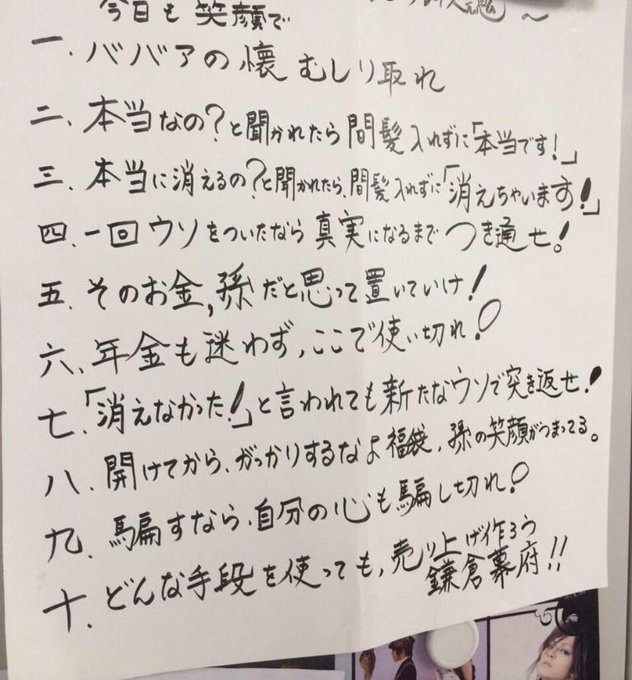 今日も笑顔で
魂〜
一、ババアの懐むしり取れ
二、本当なの?と聞かれたら間髪入れずに「本当です!」
三、本当に消えるの?と聞かれたら、間髪入れずに「消えちゃいます!」
四、一回ウソをついたなら真実になるまでつき通せ!
五、そのお金,孫だと思って置いていけ!
六、年金も迷わず,ここで使い切れ!
七、「消えなかった!」と言われても新たなウソで突き返せ!
八、開けてから、がっかりするなよ福袋,孫の笑顔がつまってる。
九、騙すなら、自分の心も騙し切れ!
十、どんな手段を使っても,売り上げ作ろう
鎌倉幕府!!